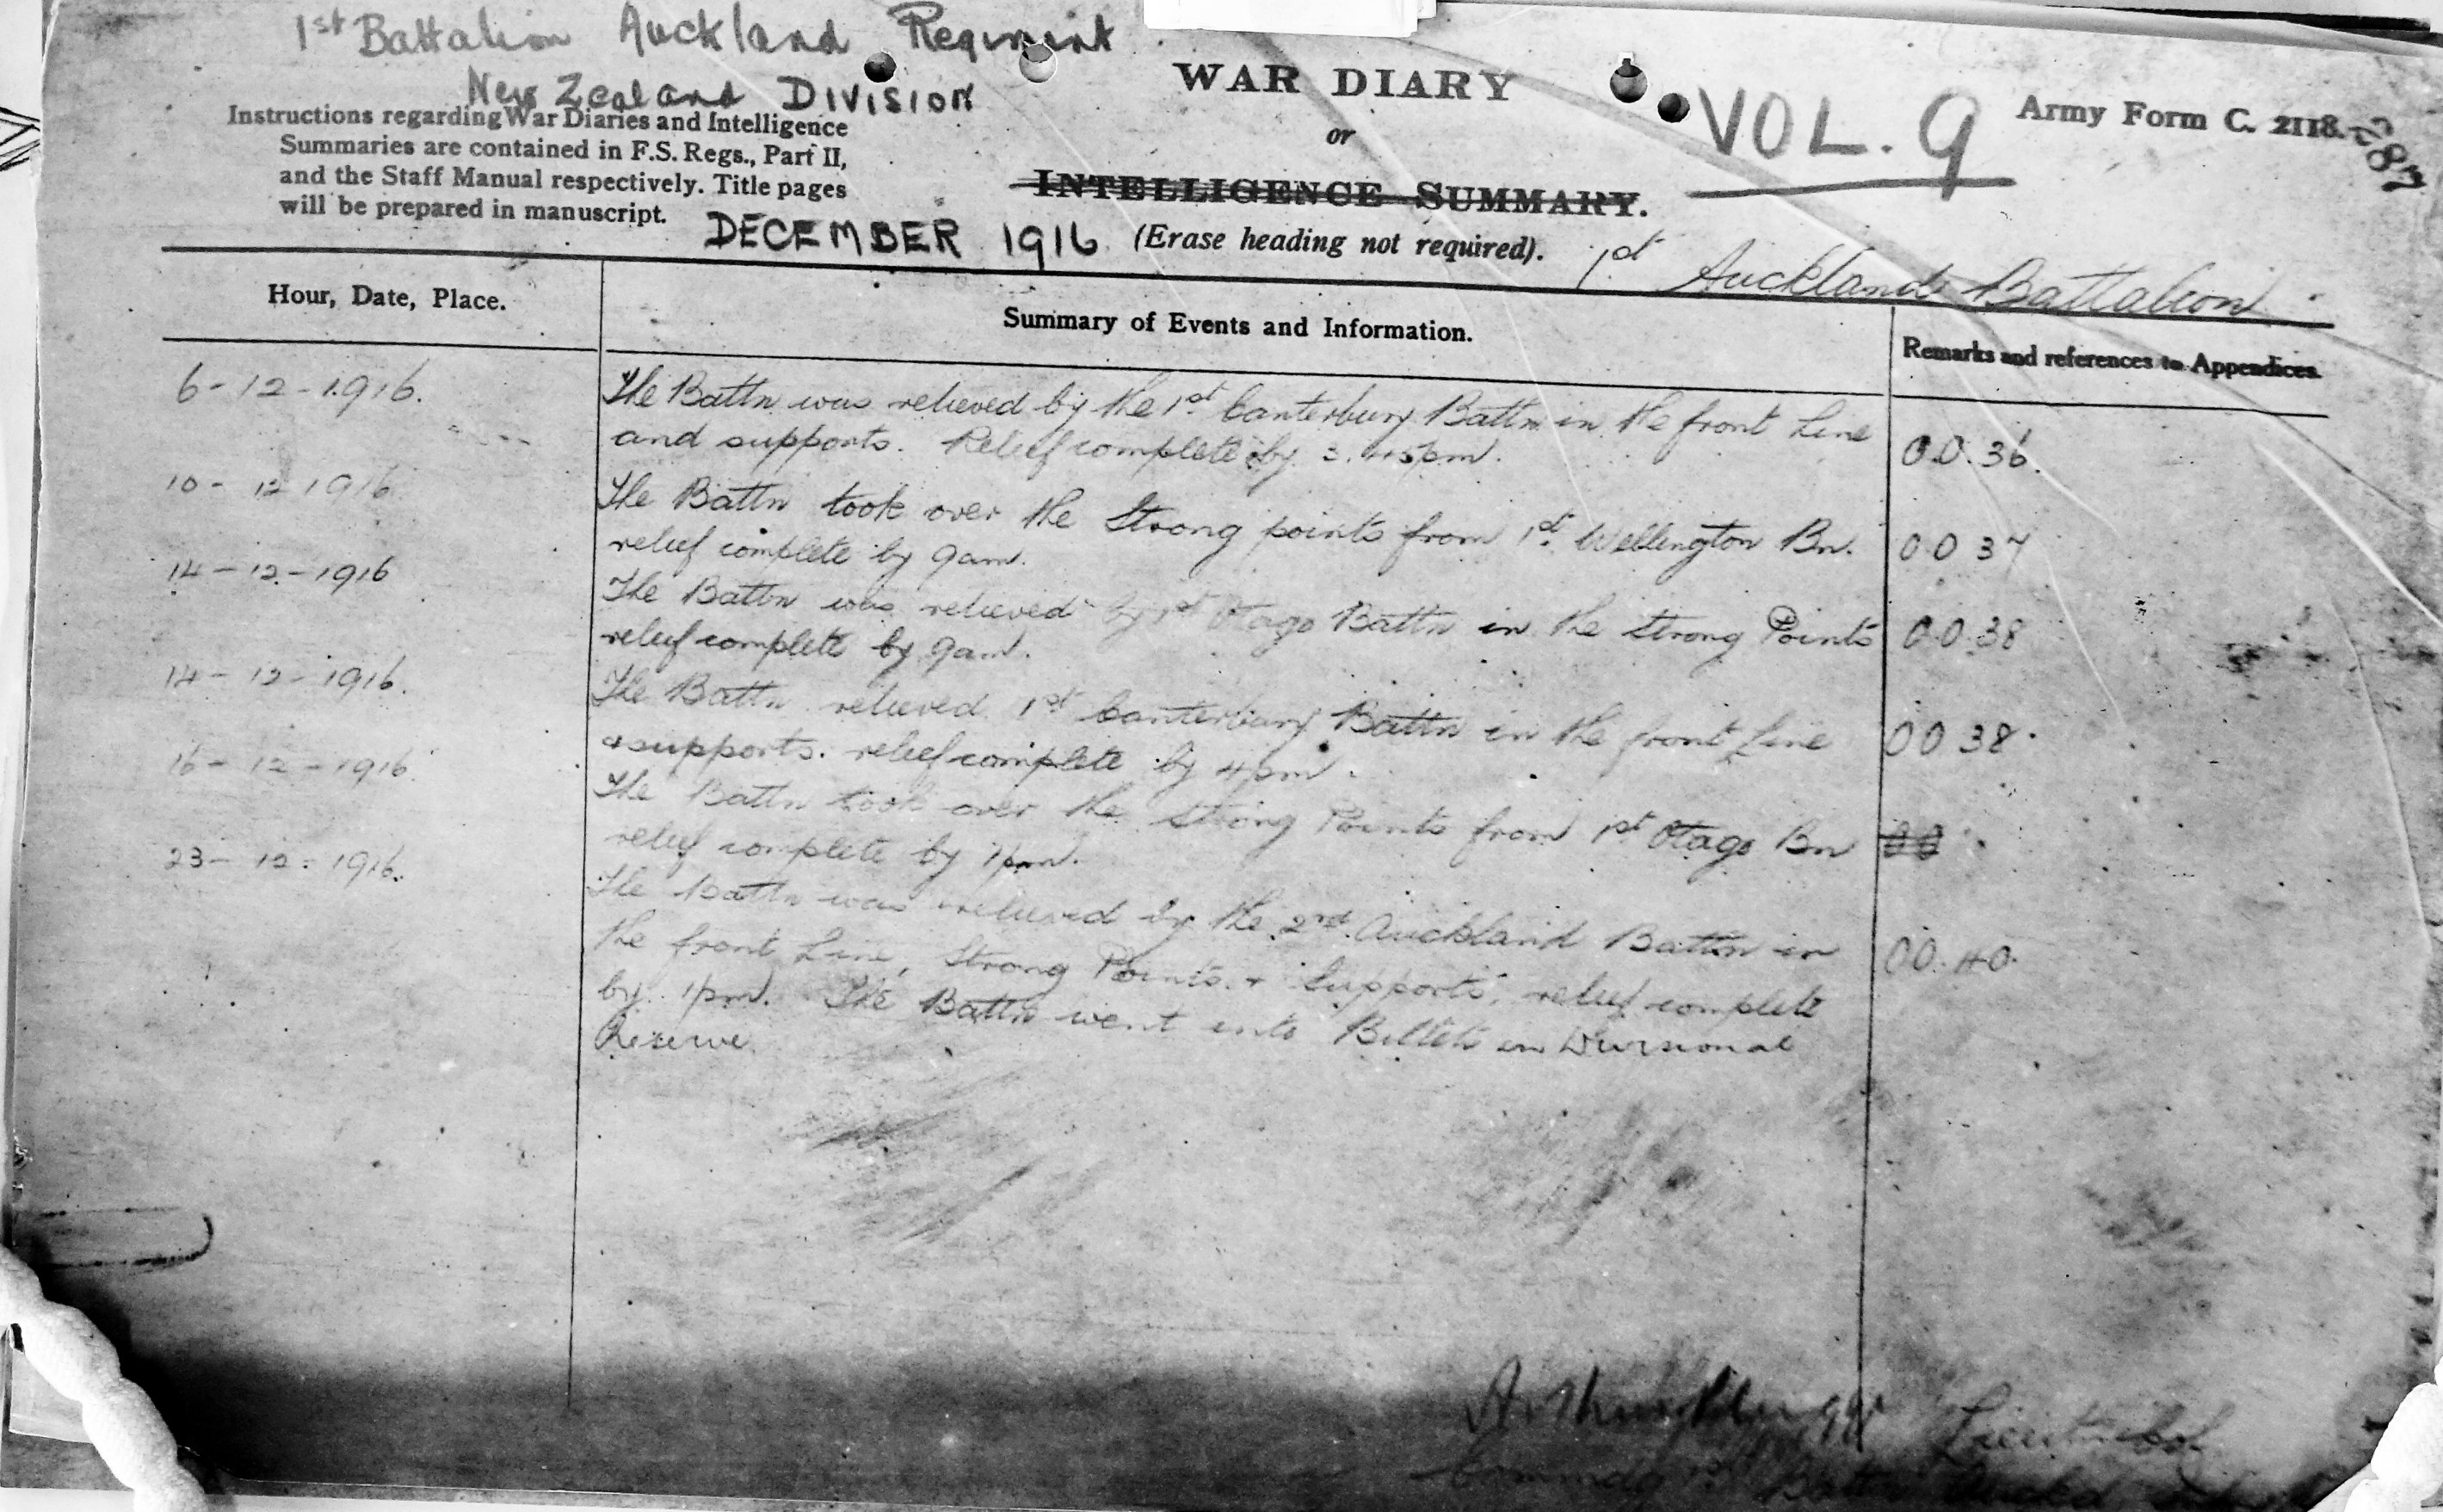 1st Battalion Auckland Regiment
New Zealand DIVISION
WAR DIARY
or
INTELLIGENCE SUMMARY.
(Erase heading not required).
VOL. 9
Army Form C. 2118.
287
Instructions regarding War Diaries and Intelligence
Summaries are contained in F.S. Regs., Part II,
and the Staff Manual respectively. Title pages
will be prepared in manuscript.
DECEMBER 1916
1st Auckland Battalion
Hour, Date, Place.
Summary of Events and Information.
Remarks and references to Appendices.
6-12-1916.
The Battn was relieved by the 1st Canterbury Battn in the front Line
and supports. Relief complete by 3.45pm.
O.O. 36.
10-12-1916
The Battn took over the Strong points from 1st Wellington Bn.
relief complete by 9am.
O.O 37
14-12-1916
The Battn was relieved by 1st Otago Battn in the strong Points
relief complete by 9am.
O.O.38
14-12-1916.
The Battn relieved 1st Canterbury Battn in the front Line
& supports. relief complete by 4pm.
OO 38.
16-12-1916.
The Battn took over the Strong Points from 1st Otago Bn
relief complete by 1pm.
OO
23-12-1916.
The Battn was relieved by the 2nd Auckland Battn in
the front Line, Strong Points & Supports, relief complete
by 1pm. The Battn went into Billets in Divisional
Reserve.
OO. 40.
Lieut. Col.
Battn